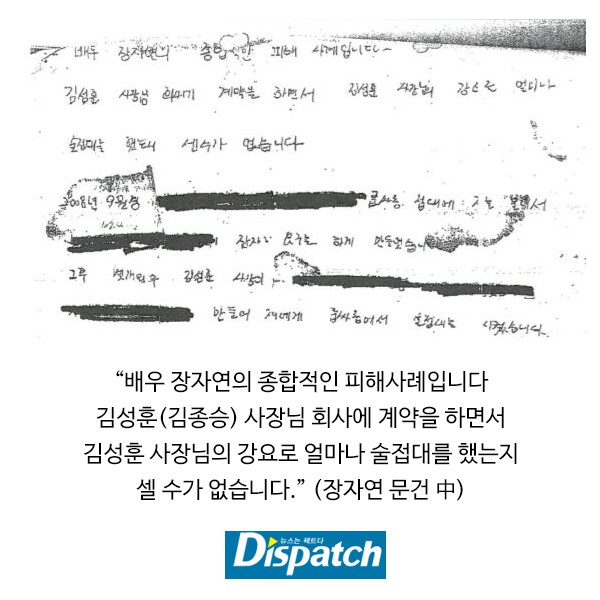 배우 장자연의 종합적인 피해 사례입니다~
김성훈 사장님 회사에 계약을 하면서 김성훈 사장님의 강요로 얼마나
술접대를 했는지 셀수가 없습니다
2008년 9월경 룸싸롱 접대에 저를 불러서
잠자리 요구를 하게 만들었습니
그후 몇개월후 김성훈 사장이
만들어 저에게 룸싸롱에서 술접대를 시켰습니다.
“배우 장자연의 종합적인 피해사례입니다
김성훈(김종승) 사장님 회사에 계약을 하면서
김성훈 사장님의 강요로 얼마나 술접대를 했는지
셀 수가 없습니다.” (장자연 문건 中)
뉴스는 팩트다
Dispatch